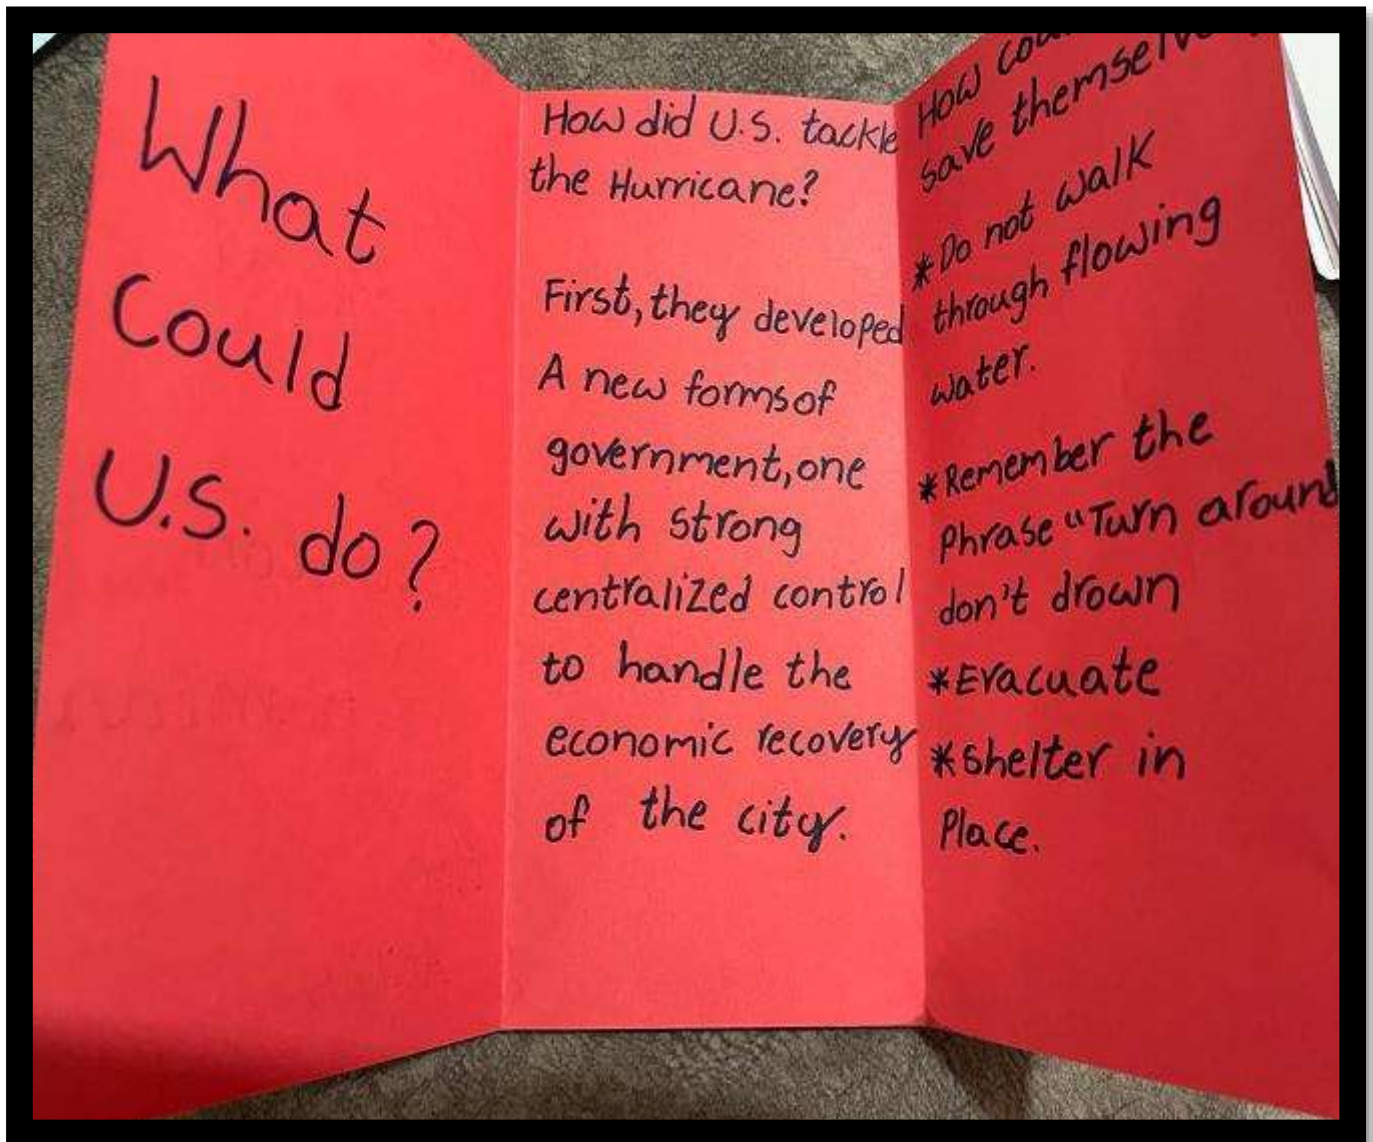 What
Could
U.S. do?
How did U.S. tackle
the Hurricane?
First, they developed
A new forms of
government, one
with strong
centralized control
to handle the
economic recovery
of the city.
How
save
*Do not walk
through flowing
water.
*Remember the
Phrase "Turn around
don't drown
*Evacuate
*Shelter in
Place.